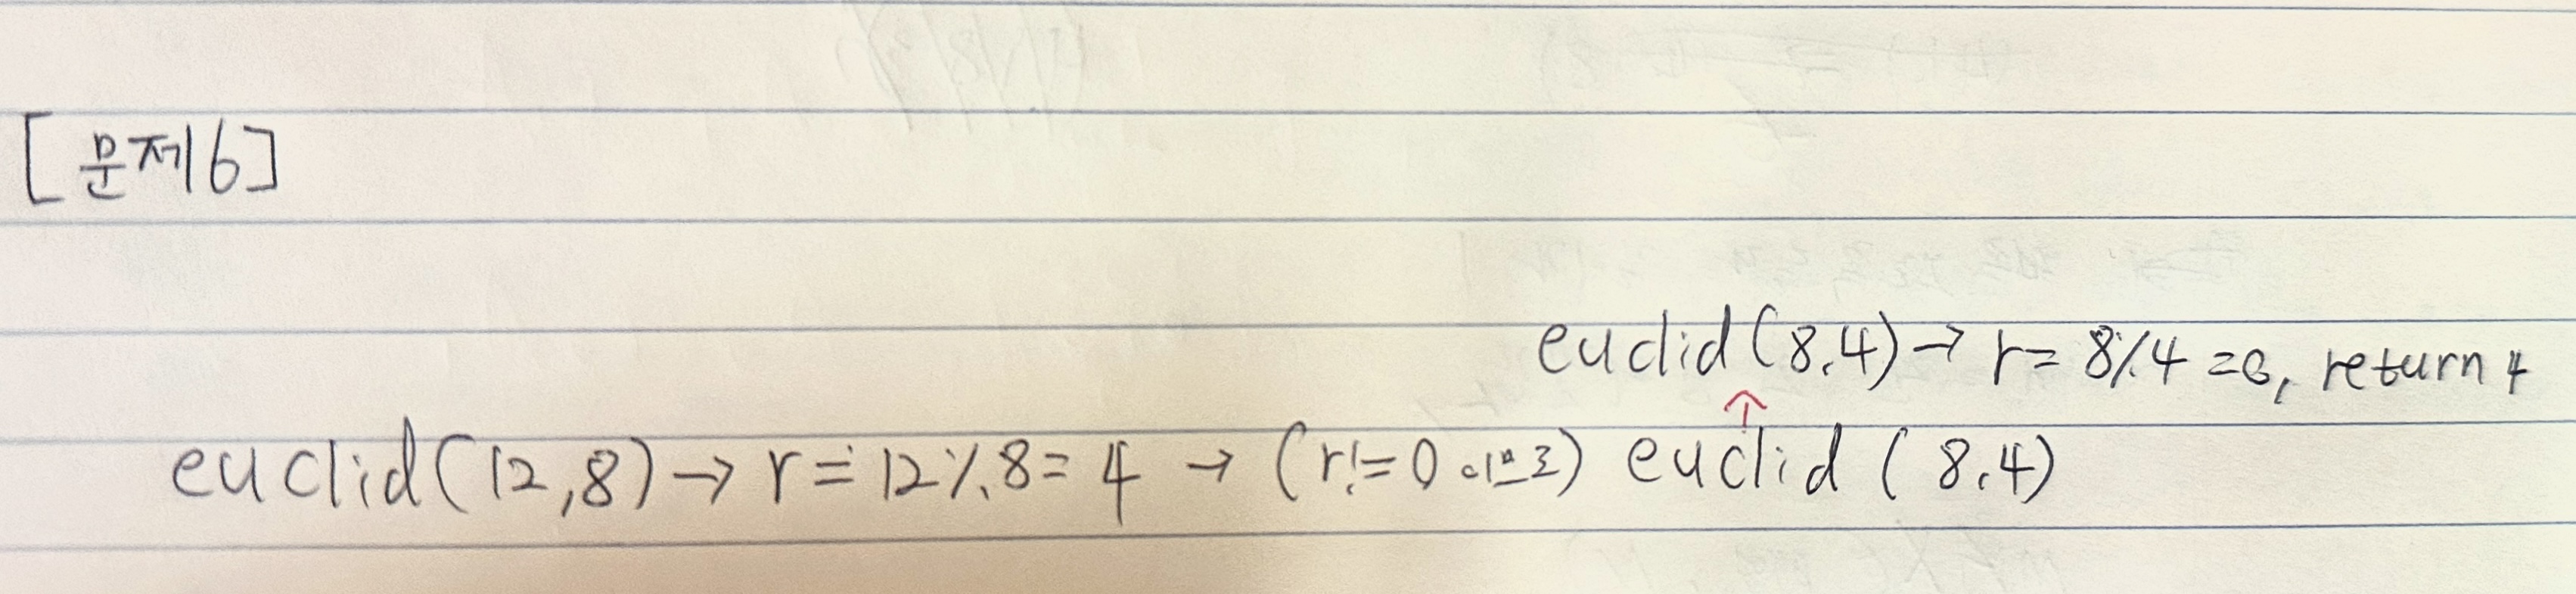 [문제6]
euclid(8,4) → r= 8%4 =0, return 4
↑
euclid(12,8) → r = 12%8 = 4 → (r!=0 이므로) euclid (8,4)